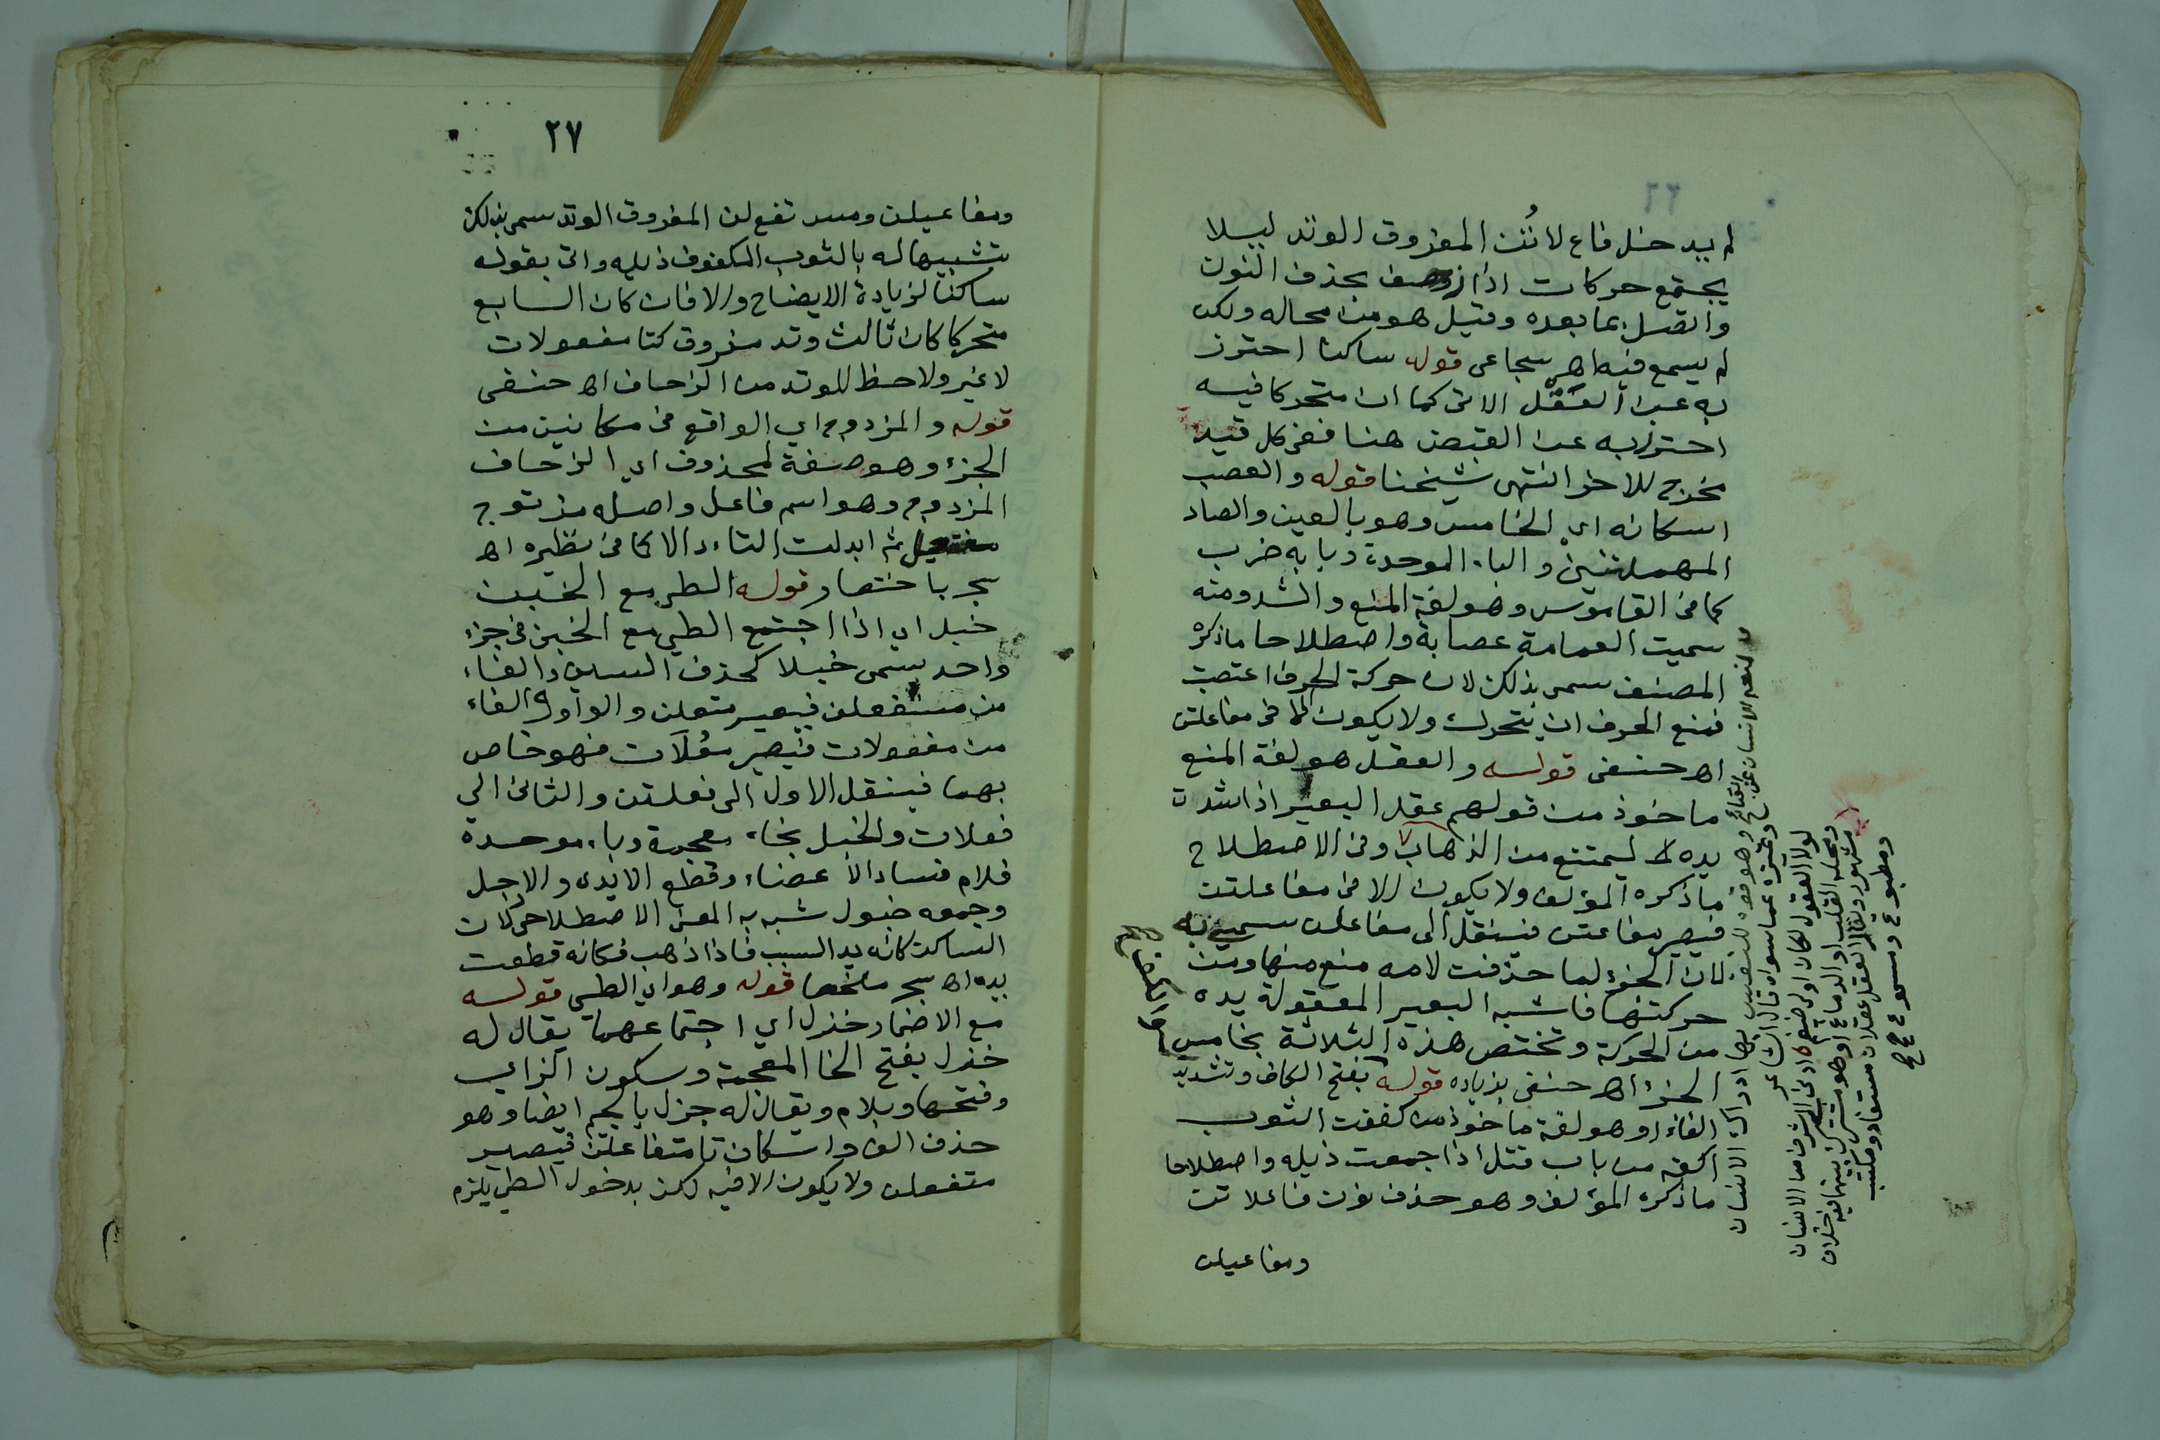 لم يدخل فاع لاتن المفروق الوتد ليلا
يجتمع حركات اذا زحف بحذف النون
واتصل بما بعده وقيل هو من محاله ولكن
لم يسمع فيه اهـ سجاعى قوله ساكنا احترز
به عن العقل الاتى كما ان متحركا فيه
احترز به عن القبض هنا ففى كل قيد
مخرج للاخر انتهى شيخنا قوله والعصب
اسكانه اي الخامس وهو بالعين والصاد
المهملتين والباء الموحدة وبابه ضرب
كما فى القاموس وهو لغة المنع والشد ومنه
سميت العمامة عصابة واصطلاحا ماذكره
المصنف سمى بذلك لان حركة الحرف اعتصبت
فمنع الحرف ان يتحرك ولا يكون الا فى مفاعلتن
اهـ حنفى قوله والعقل هو لغة المنع
ماخوذ من قولهم عقل البعير اذا شدت
يده ليمتنع من الذهاب وفى الاصطلاح
ماذكره المؤلف ولا يكون الا فى مفاعلتن
فيصير مفاعتن فينقل الى مفاعلن سمى به
لان الجزء لما حذفت لامه منع منها ومن
حركتها فاشبه البعير المعقولة يده
من الحركة وتختص هذه الثلاثة بخامس
الجزء اهـ حنفى بزيادة قوله بفتح الكاف وتشديد
الفاء او هو لغة ماخوذ من كففت الثوب
اكفه من باب قتل اذا جمعت ذيله واصطلاحا
ماذكره المؤلف وهو حذف نون فاعلاتن
ومفاعيلن
لولا العقول لكان ادنى ضيغم ادنى الى شرف من الانسان
ومحله القلب او الدماغ او هو مشترك بينهما فيه خلاف
مشهور ونقل العقل عقلان مستفاد ومكتسب
ومطبوع ومسموع
٢٧
ومفاعيلن ومستفع لن المفروق الوتد سمى بذلك
تشبيها له بالثوب المكفوف ذيله واتى بقوله
ساكنا لزيادة الايضاح والا فان كان السابع
متحركا كان ثالث وتد مفروق كتا مفعولات
لا غير ولا حظ للوتد من الزحاف اهـ حنفى
قوله والمزدوج اي الواقع فى مكانين من
الجزء وهو صفة لمحذوف اي الزحاف
المزدوج وهو اسم فاعل واصله مزتوج
ثم ابدلت التاء دالا كما فى نظيره اهـ
سجر باختصار قوله الطى مع الخبن
خبل اي اذا اجتمع الطى مع الخبن فى جزء
واحد سمى خبلا كحذف السين والفاء
من مستفعلن فيصير متعلن والواو والفاء
من مفعولات فيصير معلات فهو خاص
بهما فينقل الاول الى فعلتن والثانى الى
فعلات والخبل بخاء معجمة وباء موحدة
فلام فساد الاعضاء وقطع الايدى والارجل
وجمعه خبول شبه به المعنى الاصطلاحى لان
الساكن كانه يد السبب فاذا ذهب فكانه قطعت
يده اهـ سجر ملخصا قوله وهو اي الطى قوله
مع الاضمار خزل اي اجتماعهما يقال له
خزل بفتح الخا المعجمة وسكون الزاي
وفتحها وبلام ويقال له جزل بالجيم ايضا وهو
حذف الف واسكان تا متفاعلن فيصير
متفعلن ولا يكون الا فيه لكن بدخول الطى يلزم